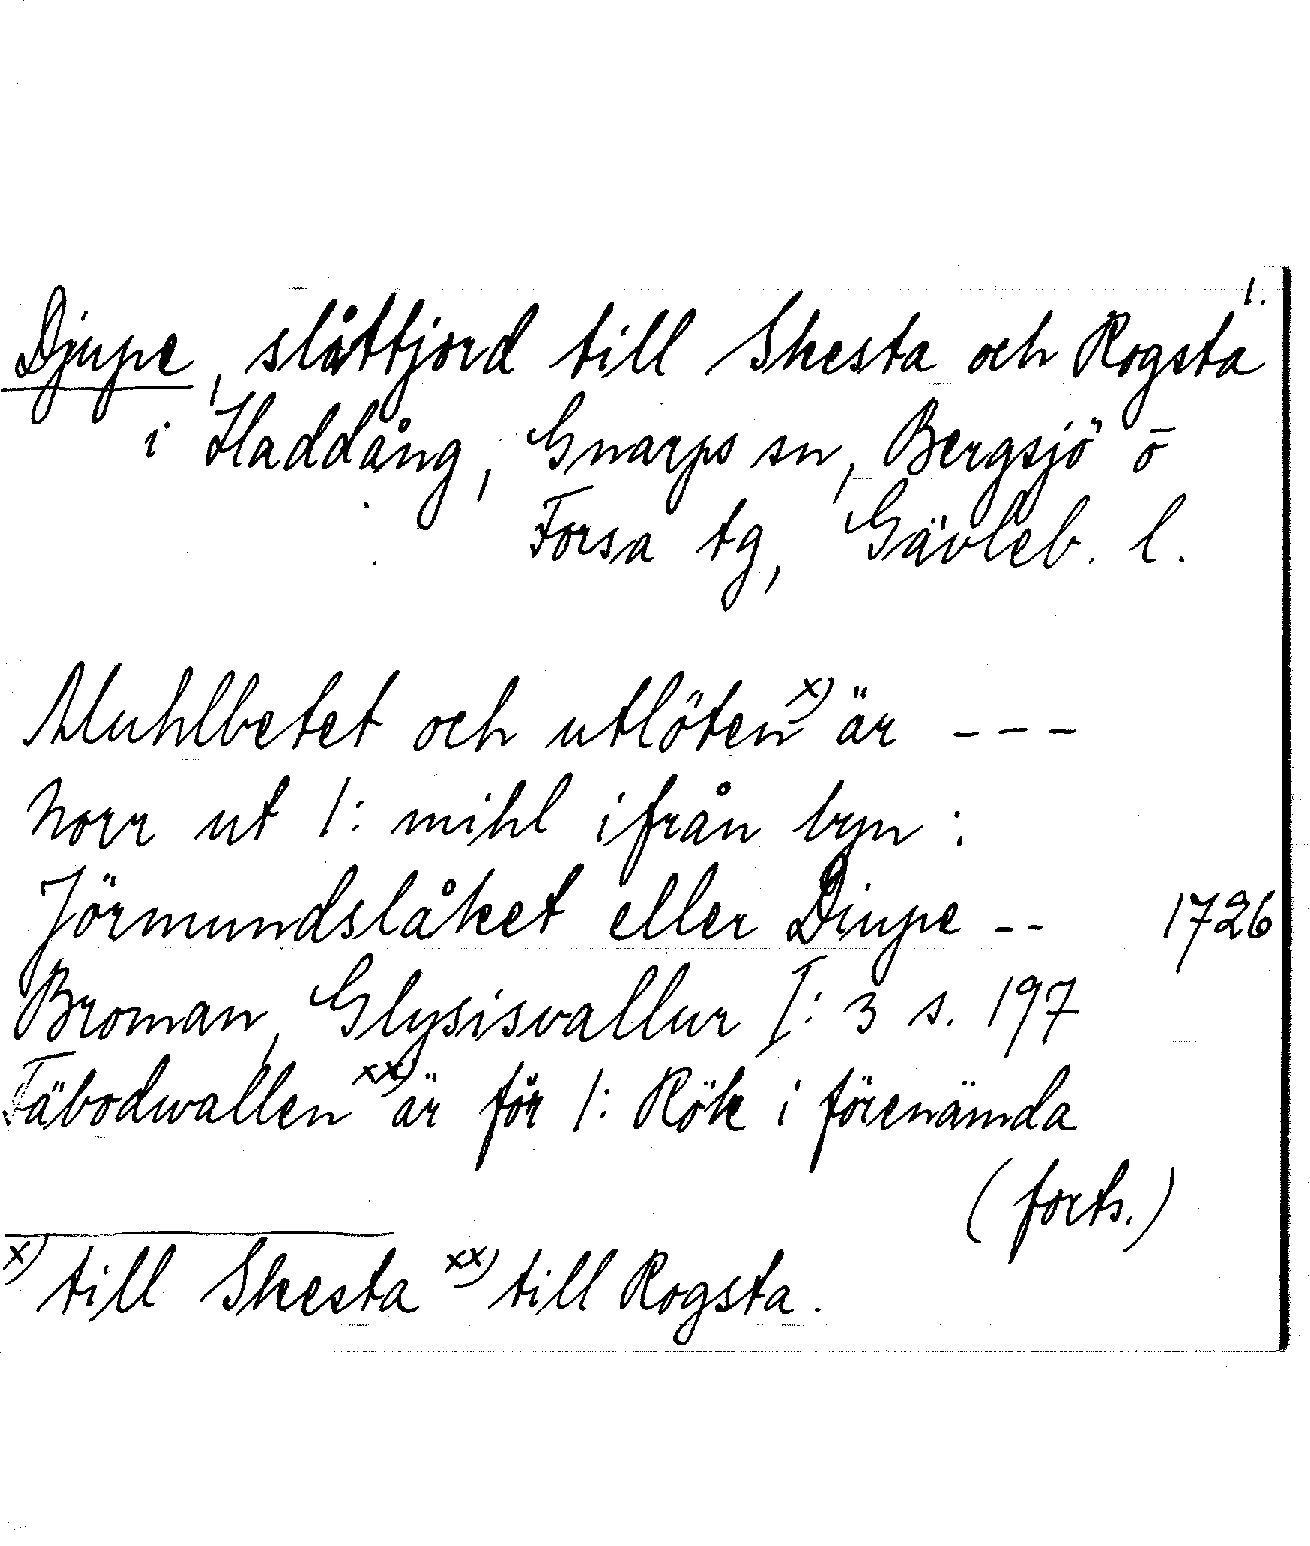 1.
Djupe, slåttjord till Skesta och Rogsta
i Haddång, Gnarps sn, Bergsjö o
Forsa tg, Gävleb. l.
Muhlbetet och utlöten x) är - - -
Norr ut 1: mihl ifrån byn :
Jörmundslåket eller Diupe - - 1726
Broman, Glysisvallur I: 3 s. 197
Fäbodwallen xx) är för 1: Rök i förenämda
(forts.)
x) till Skesta xx) till Rogsta.